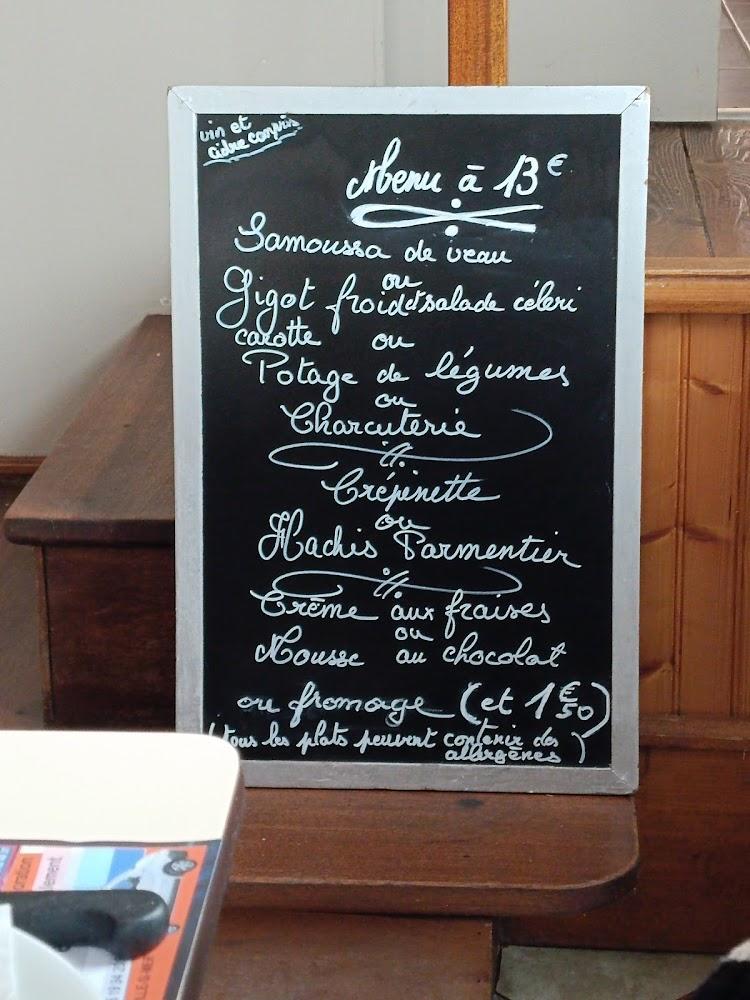 vin et
cidre compris
Menu à 13€
Samoussa de veau
ou
Gigot froid et salade céleri
carotte ou
Potage de légumes
ou
Charcuterie
Crépinette
ou
Hachis Parmentier
Crème aux fraises
ou
Mousse au chocolat
ou fromage (et 1€50)
(tous les plats peuvent contenir des
allergènes)